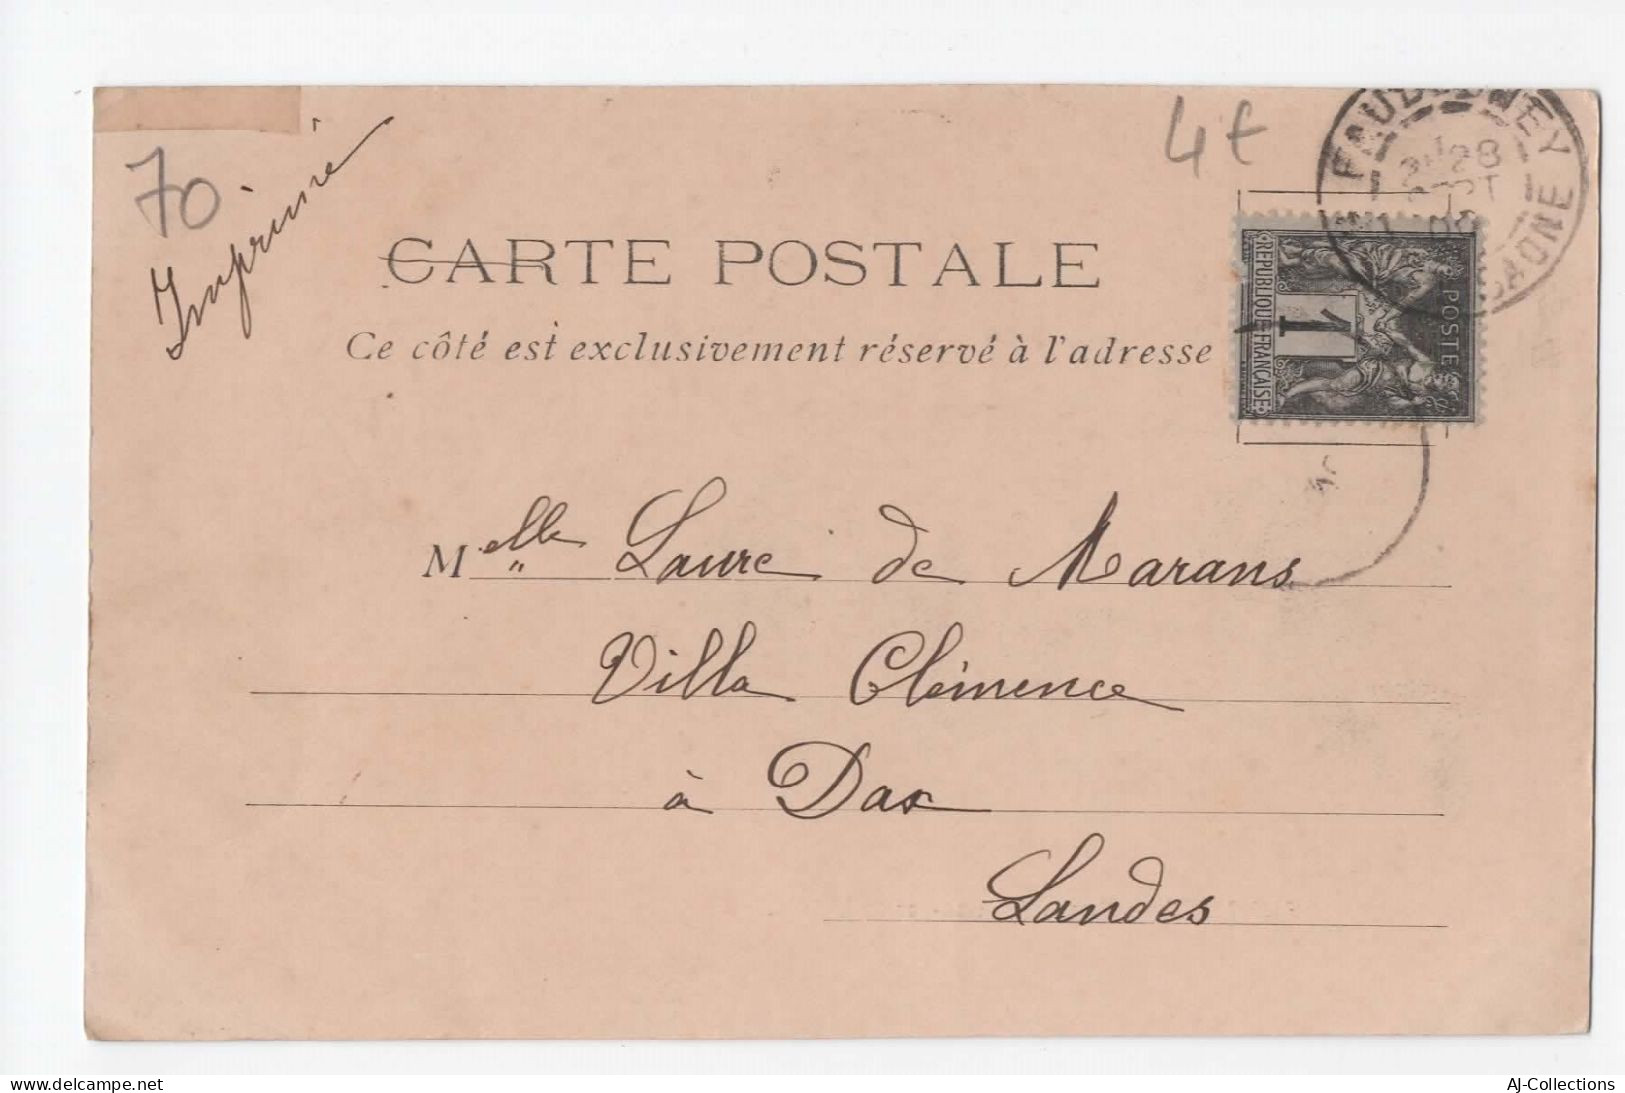 70
Imprimé
4€
CARTE POSTALE
Ce côté est exclusivement réservé à l'adresse
REPUBLIQUE FRANÇAISE
1
POSTE
28
SAONE
Melle Laure de Marans
Villa Clémence
à Dax
Landes
www.delcampe.net
AJ-Collections